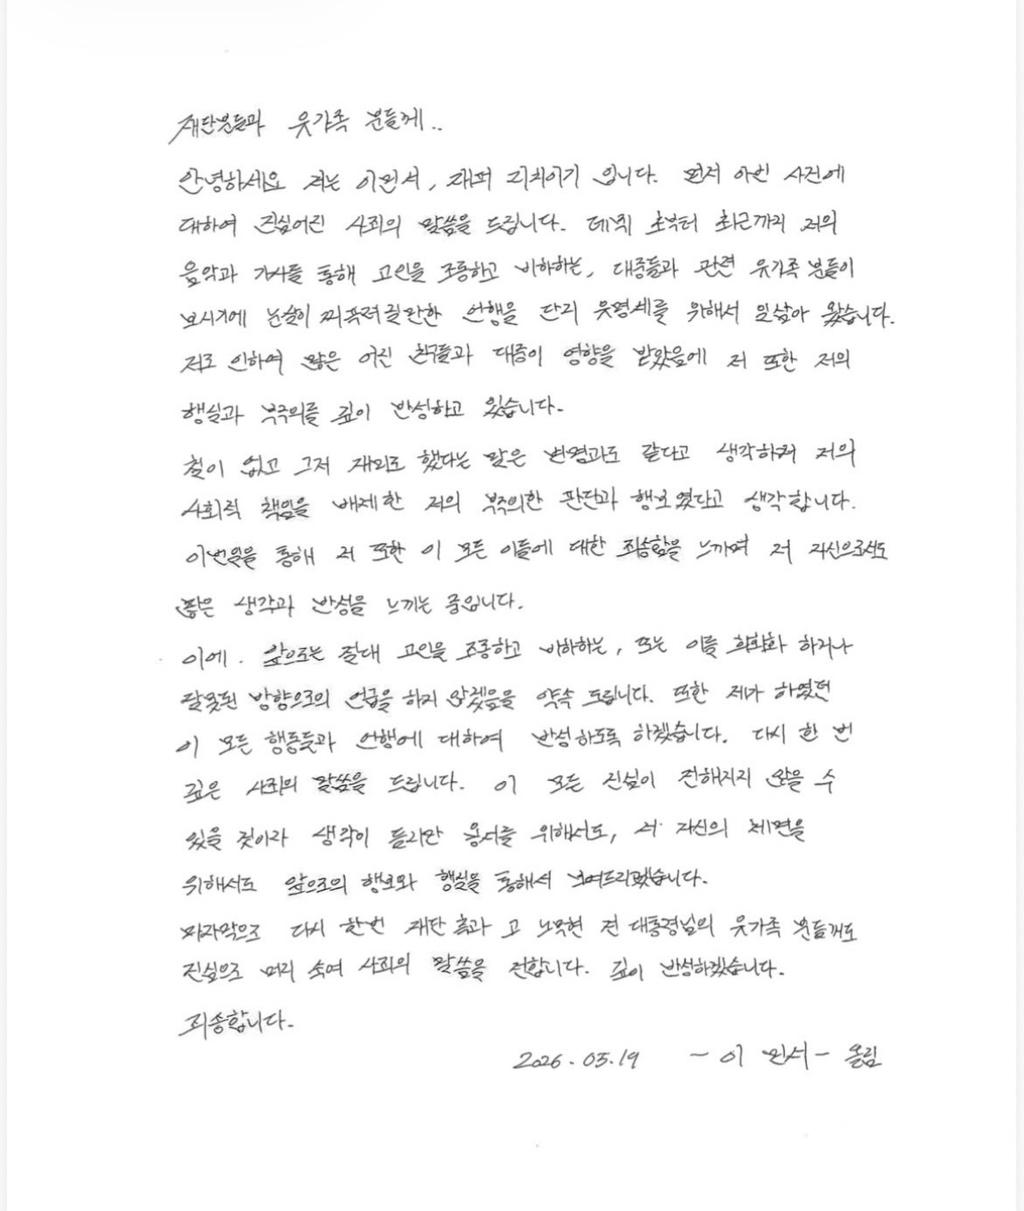 재단분들과 유가족 분들께..
안녕하세요 저는 이민서, 래퍼 리치이기 입니다. 먼저 이번 사건에
대하여 진심어린 사죄의 말씀을 드립니다. 데뷔 초부터 최근까지 저의
음악과 가사를 통해 고인을 조롱하고 비하하는, 대중들과 관련 유가족 분들이
보시기에 눈살이 찌푸려질만한 언행을 단지 유명세를 위해서 일삼아 왔습니다.
저로 인하여 많은 어린 친구들과 대중이 영향을 받았음에 저 또한 저의
행실과 부주의를 깊이 반성하고 있습니다.
철이 없고 그저 재미로 했다는 말은 변명과도 같다고 생각하며 저의
사회적 책임을 배제한 저의 부주의한 판단과 행보였다고 생각합니다.
이번일을 통해 저 또한 이 모든 이들에 대한 죄송함을 느끼며 저 자신으로서도
많은 생각과 반성을 느끼는 중입니다.
이에. 앞으로는 절대 고인을 조롱하고 비하하는, 또는 이를 희화화 하거나
잘못된 방향으로의 언급을 하지 않겠음을 약속 드립니다. 또한 제가 하였던
이 모든 행동들과 언행에 대하여 반성하도록 하겠습니다. 다시 한 번
깊은 사죄의 말씀을 드립니다. 이 모든 진심이 전해지지 않을 수
있을 것이라 생각이 들지만 용서를 위해서도, 저 자신의 체면을
위해서도 앞으로의 행보와 행실을 통해서 보여드리겠습니다.
마지막으로 다시 한번 재단 측과 고 노무현 전 대통령님의 유가족 분들께도
진심으로 머리 숙여 사죄의 말씀을 전합니다. 깊이 반성하겠습니다.
죄송합니다.
2026.03.19 - 이 민서 - 올림